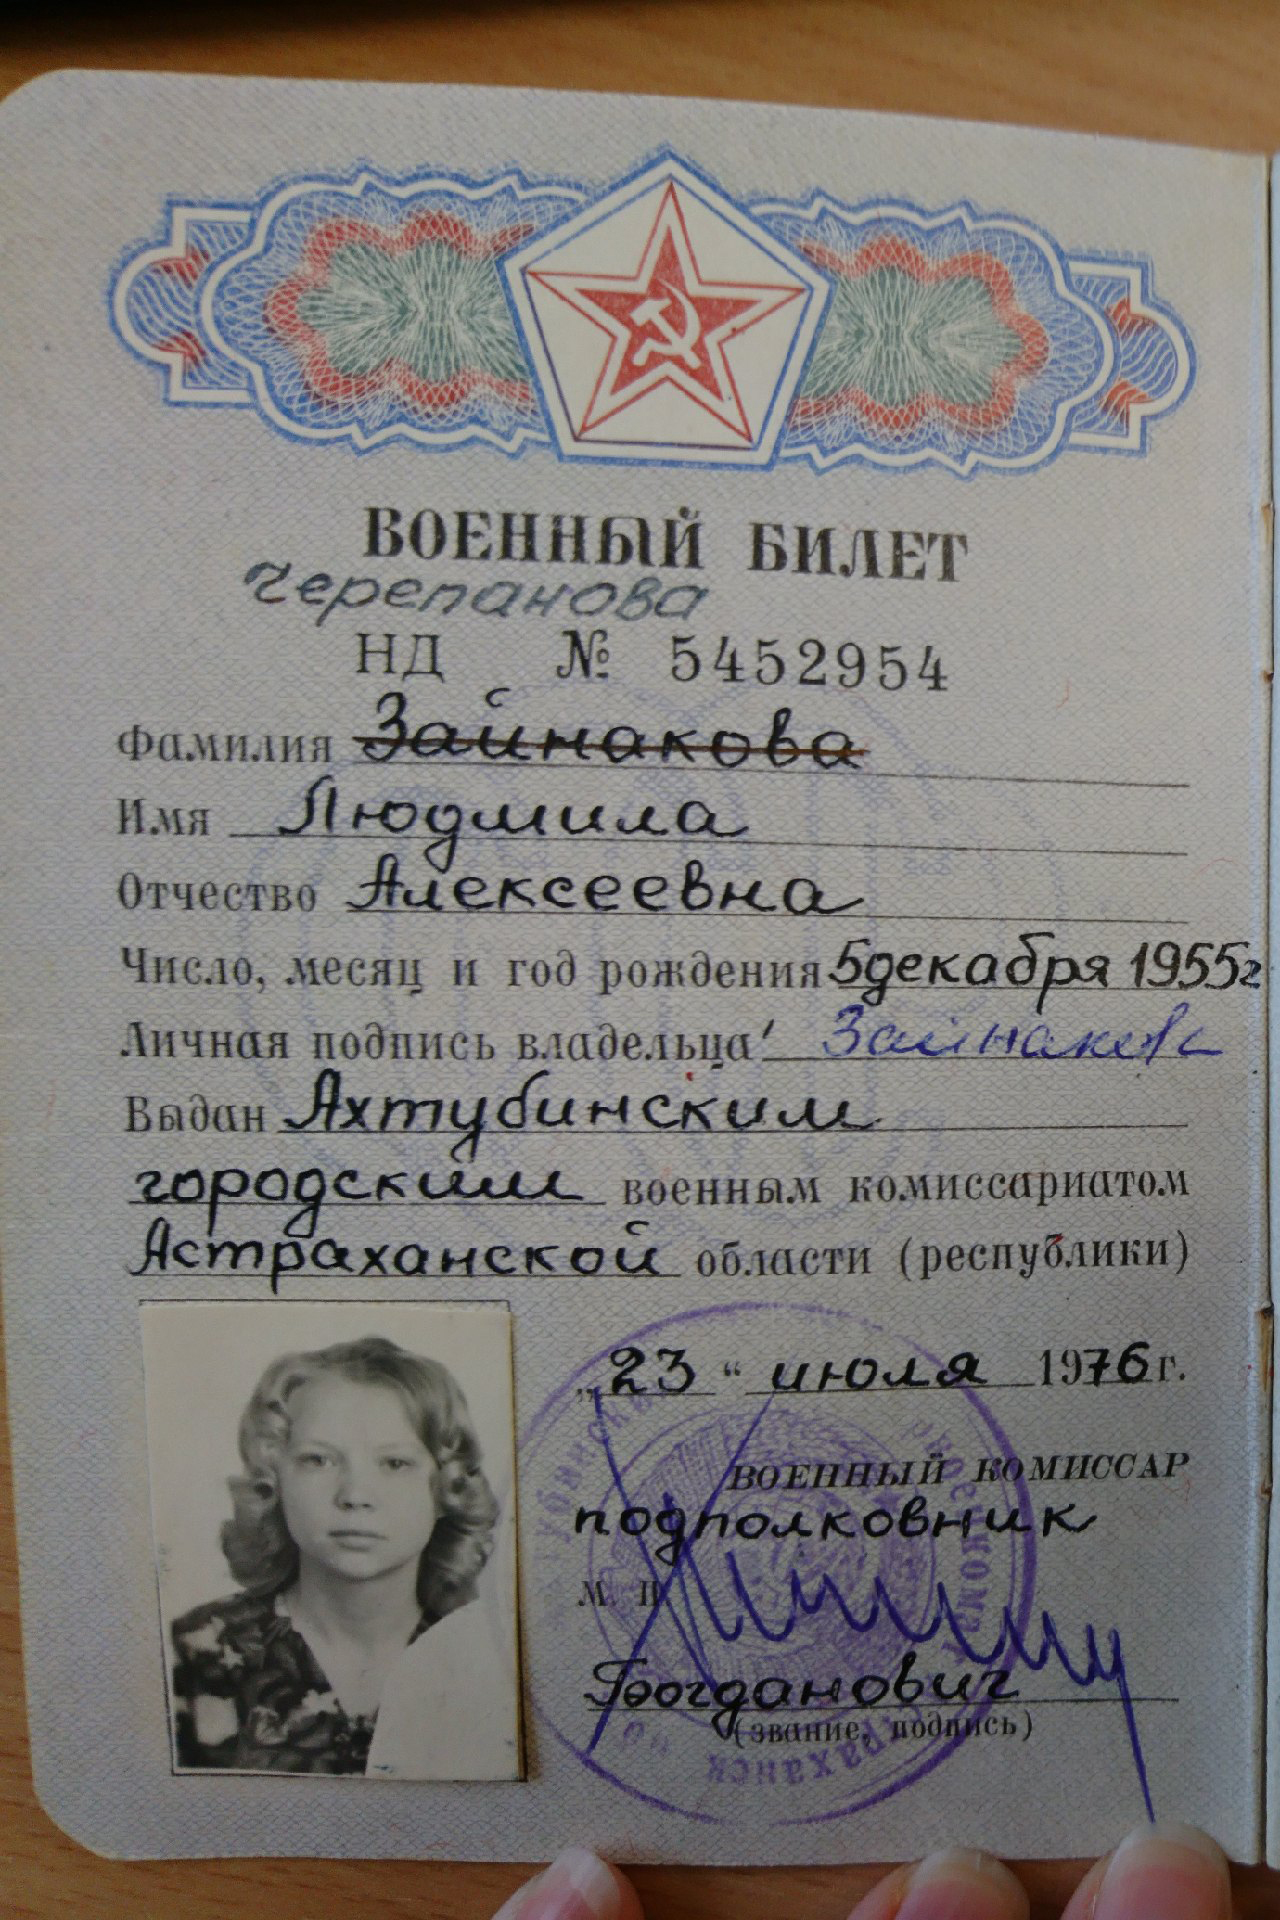 ВОЕННЫЙ БИЛЕТ
Черепанова
НД № 5452954
Фамилия Зайнакова
Имя Людмила
Отчество Алексеевна
Число, месяц и год рождения 5 декабря 1955г
Личная подпись владельца Зайнакова
Выдан Ахтубинским
городским военным комиссариатом
Астраханской области (республики)
„23“ июля 1976 г.
ВОЕННЫЙ КОМИССАР
подполковник
М. П.
Богданович
(звание, подпись)